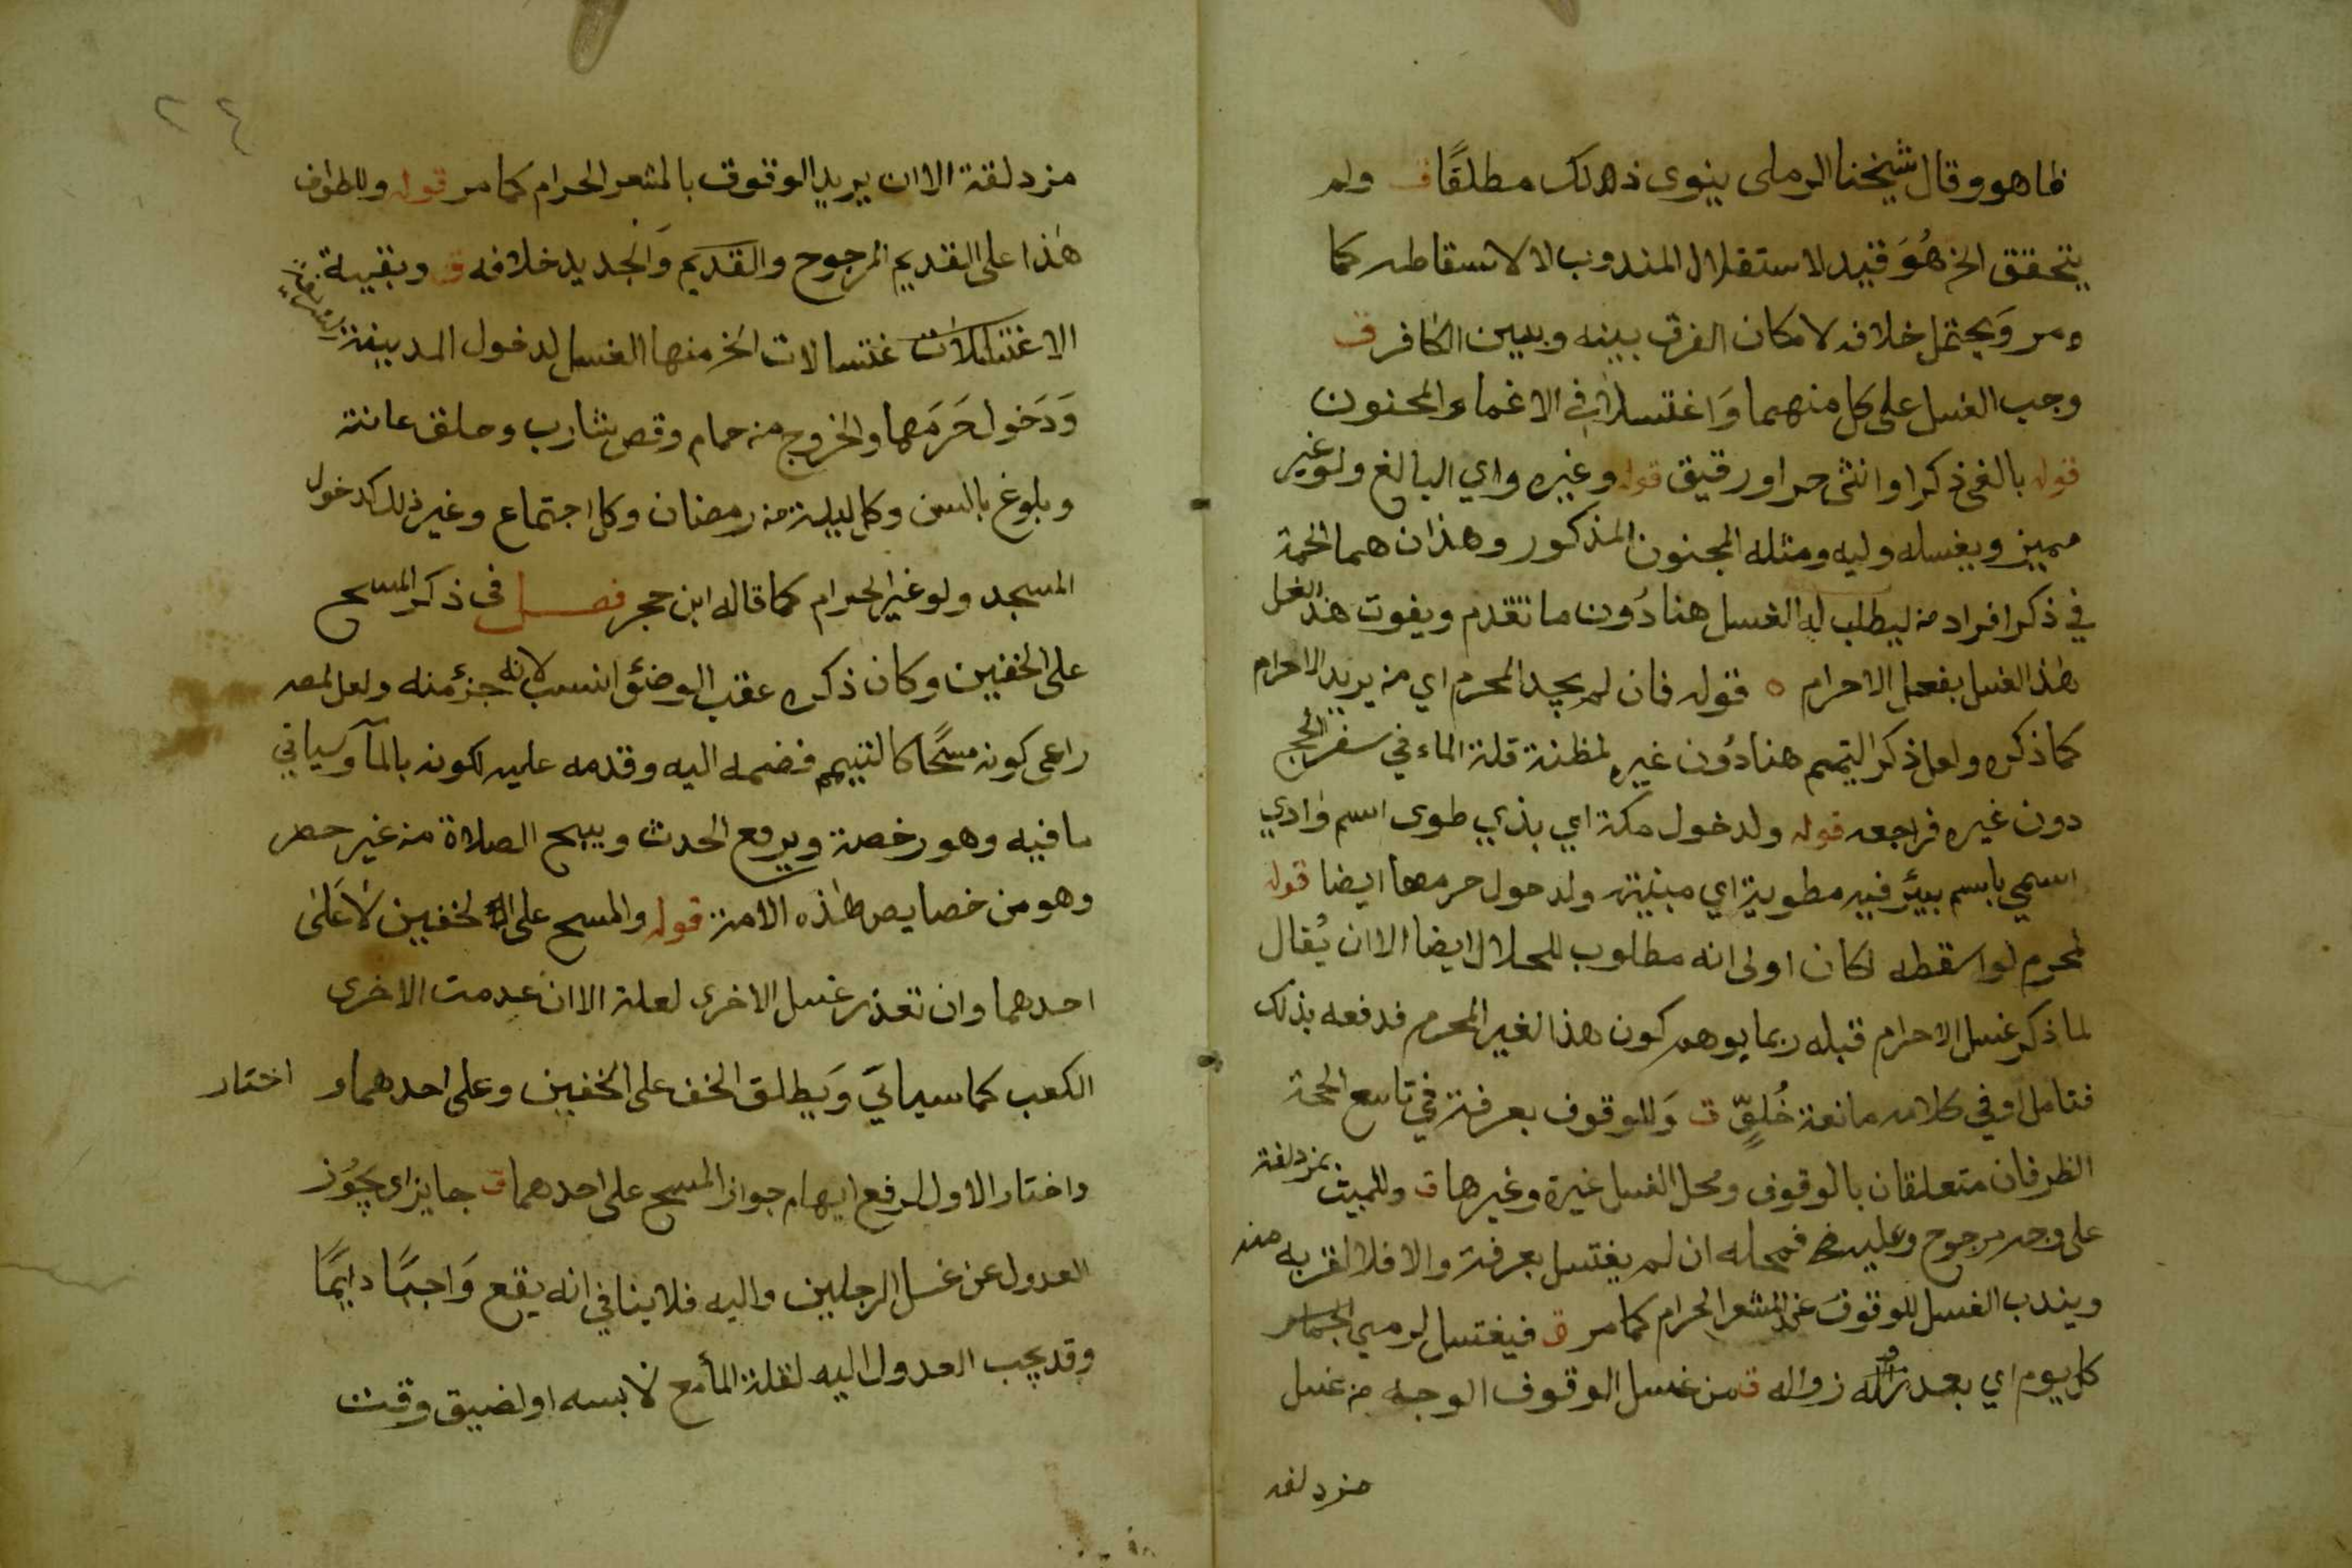 ظاهر وقال شيخنا الرملى ينوى ذلك مطلقًا ق ولم
يتحقق الخ هُوَ قيد لاستقلال المندوب لا لاسقاطه كما
ومر وَيحتمل خلافه لامكان الفرق بينه وبين الكافر ق
وجب الغسل على كل منهما وَاغتسلا في الاغماء والمجنون
قوله بالغ ذكرا وانثى حر او رقيق قوله وغيره واي البالغ ولو غير
مميز ويغسله وليه ومثله المجنون المذكور وهذان هما الحكمة
في ذكر افراد من يطلب له الغسل هنا دُون ما تقدم ويفوت هذا الغسل
هذا الغسل بفعل الاحرام ه قوله فان لم يجد المحرم اي من يريد الاحرام
كما ذكره ولعل ذكر التيمم هنا دُون غيره لمظنة قلة الماء في سفر الحج
دون غيره فراجعه قوله ولدخول مكة اي بذي طوى اسم وَادي
اسمي باسم بيئر فيه مطوية اي مبنية ولدخول حرمها ايضا قوله
لمحرم لو اسقطه لكان اولى انه مطلوب للحلال ايضا الا ان يُقال
لما ذكر غسل الاحرام قبله ربما يوهم كون هذا لغير المحرم فدفعه بذلك
فتامل او في كلامه مانعة خُلوٍّ ق وَللوقوف بعرفة في تاسع الحجة
الظرفان متعلقان بالوقوف ومحل الغسل غيره وغيرها ق وللمبيت بمزدلفة
على وجه مرجوح وعليه فمحله ان لم يغتسل بعرفة والا فلا لقربه منه
ويندب الغسل للوقوف عند المشعر الحرام كما مر ق فيغتسل لرمي الجمار
كل يوم اي بعد زواله ق من غسل الوقوف الوجه من غسل
مزدلفه
٢٤
مزدلفة الا ان يريد الوقوف بالمشعر الحرام كما مر قوله وللطواف
هٰذا على القديم المرجوح والقديم وَالجديد خلافه ق وبقيية
الاغتسالات غتسالات الخ منها الغسل لدخول المدينة
وَدَخول حَرَمَهما والخروج من حمام وقص شارب وحلق عانة
وبلوغ بالسن وكل ليلة من رمضان وكل اجتماع وغير ذلك كدخول
المسجد ولو غير الحرام كما قاله ابن حجر فصل فى ذكر المسح
على الخفين وكان ذكره عقب الوضئ انسب لانه جزء منه ولعل المصـ
راعى كونه مسحًا كالتييمم فضمه اليه وقدمه عليه لكونه بالمآ وسياتي
ما فييه وهو رخصة ويرفع الحدث ويبيح الصلاة من غير حصر
وهو من خصايص هٰذه الامة قوله والمسح على الخفين لَا عَلى
احدهما وان تعذر غسل الاخرى لعلة الا ان عدمت الاخرى
الكعب كما سياتي وَيطلق الخف على الخفين وعلى احدهما و اختار
واختار الاول لرفع ايهام جواز المسح على احدهما ق جايز اى يَجُوْز
العدول عن غسل الرجلين واليه فلا ينافي انه يقع وَاجبًا دايمًا
وقد يجب العدول اليه لقلة المأ مع لابسه او لضيق وقت